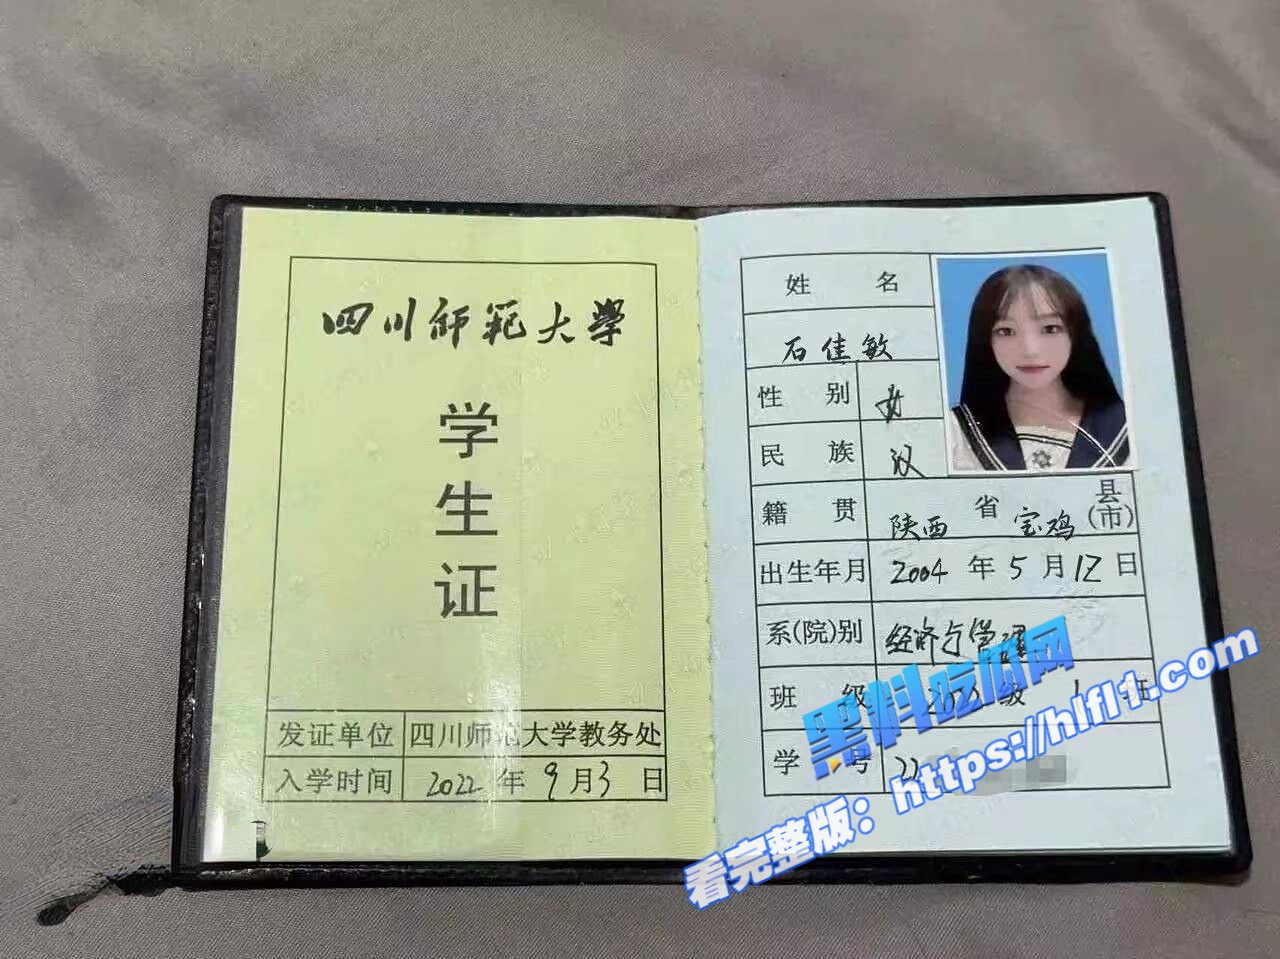 四川师范大学
学
生
证
发证单位 四川师范大学教务处
入学时间 2022 年 9 月 3 日
姓 名
石佳敏
性 别 女
民 族 汉
籍 贯 陕西 省 宝鸡 县(市)
出生年月 2004 年 5 月 12 日
系(院)别 经济与管理
班 级 级 1 班
学 号 22
黑料吃瓜网
看完整版：https://hlfl1.com